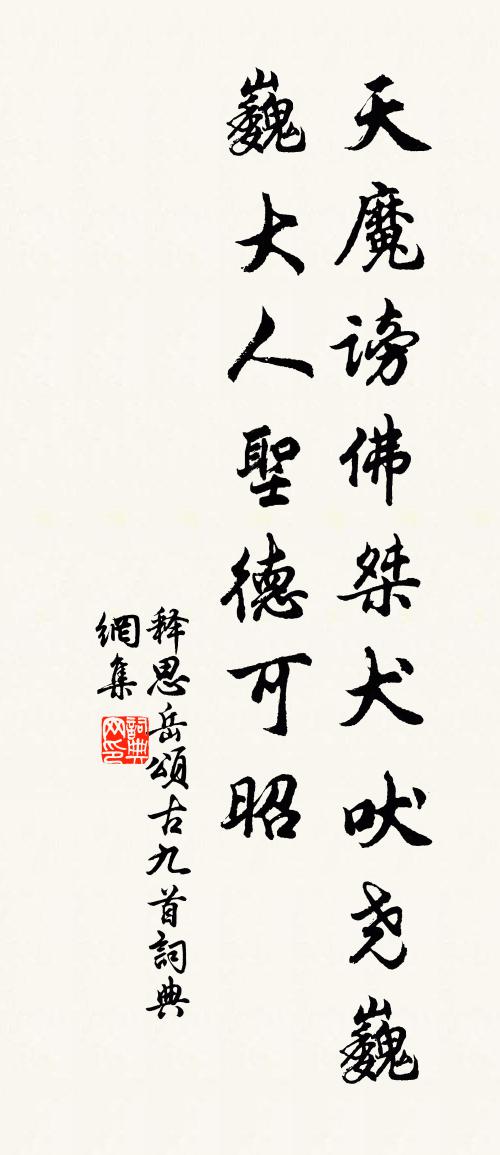 天魔謗佛桀犬吠尧巍
巍大人聖德可昭
释思岳頌古九首詞典
網集
詞典
网印